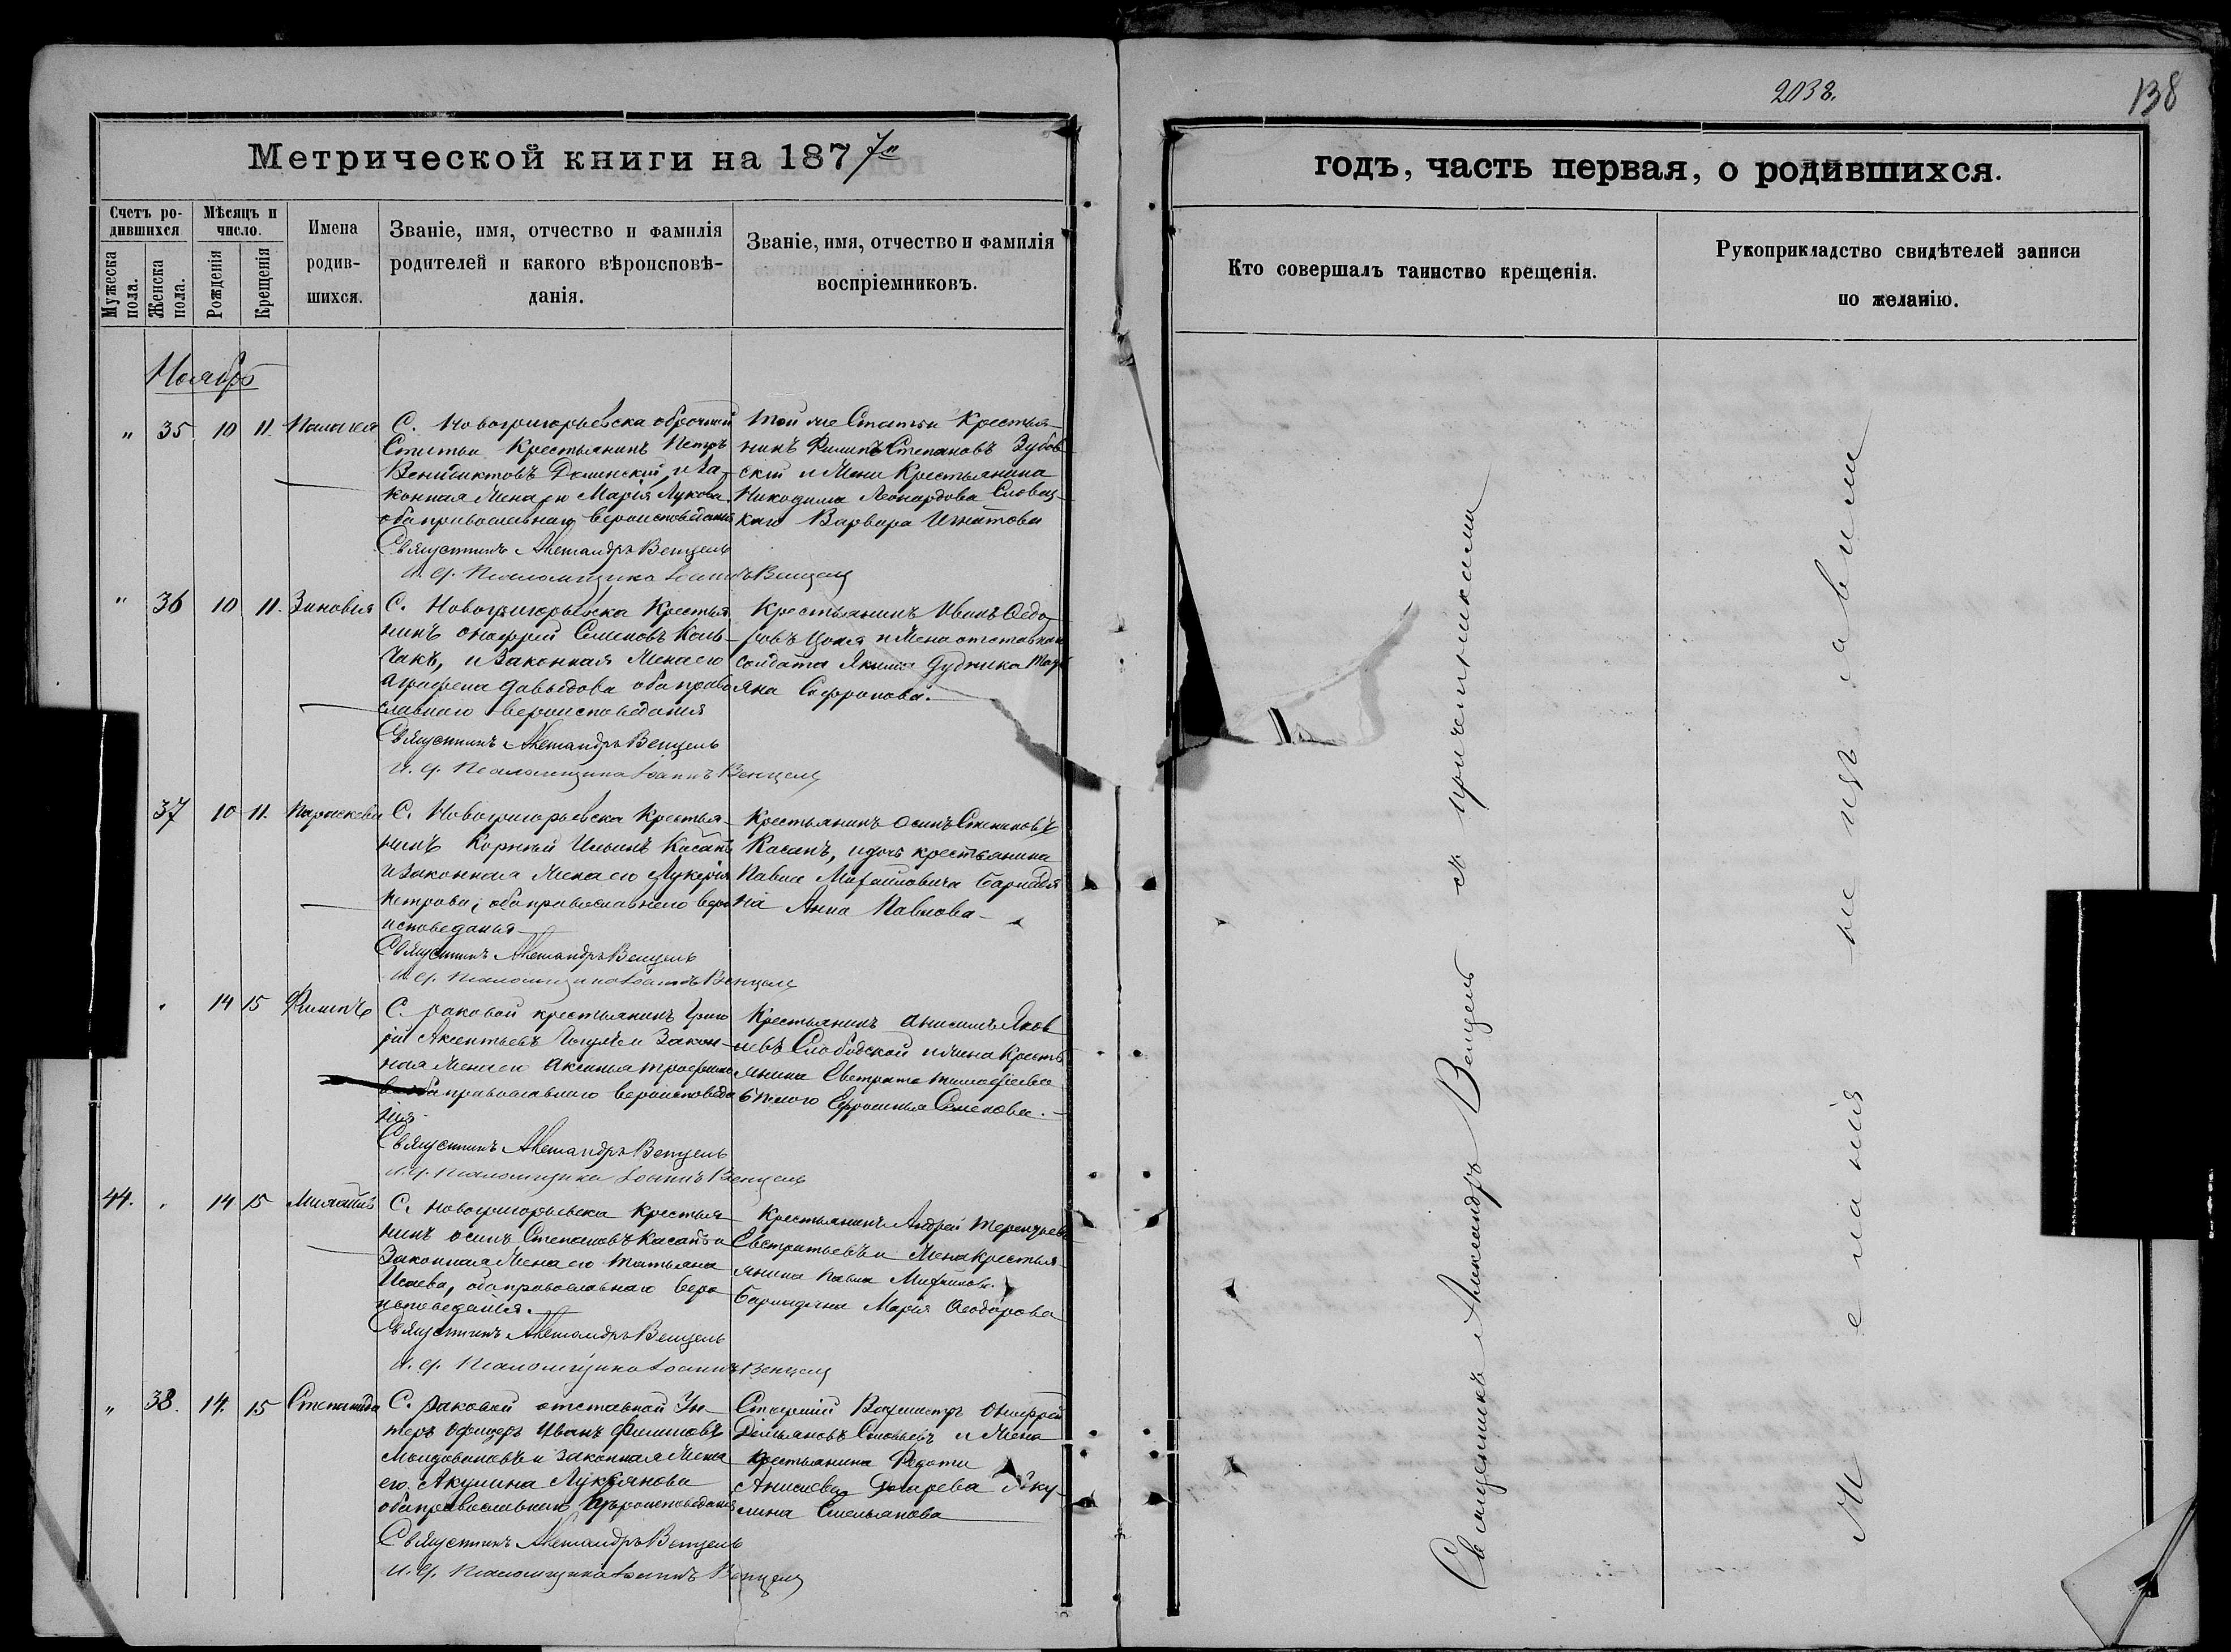 2038.
138
Метрической книги на 1877
годъ, часть первая, о родившихся.
Счетъ ро-
дившихся
Мѣсяцъ и
число.
Мужеска
пола.
Женска
пола.
Рожденія
Крещенія
Имена
родив-
шихся.
Званіе, имя, отчество и фамилія
родителей и какого вѣроисповѣ-
данія.
Званіе, имя, отчество и фамилія
воспріемниковъ.
Кто совершалъ таинство крещенія.
Рукоприкладство свидѣтелей записи
по желанію.
Ноябрь
„ 35 10 11. Палагея
С. Новогригорьевска оброчной
Статьи Крестьянинъ Петръ
и За-
конная Жена его Марія Лукова
оба православнаго вероисповеданія
Священникъ Александръ Венцель
и. д. Псаломщика Іоаннъ Венцель
той же Статьи Крестья-
нинъ Филипъ Степановъ Зубов-
скій и Жена Крестьянина
Никодима Леонардова Словац-
каго Варвара Игнатова
„ 36 10 11. Зиновія
С. Новогригорьевска Крестья
нинъ Онофрей Семеновъ Коль-
чакъ, и Законная Жена его
Агрофена Давыдова оба право
славнаго вероисповеданія
Священникъ Александръ Венцель
и. д. Псаломщика Іоаннъ Венцель
Крестьянинъ Иванъ Федо-
ровъ Цопа и Жена отставнаго
солдата Якима Дудника
яна Софронова.
37 10 11. Параскева
С. Новогригорьевска Крестья-
нинъ Корней Ильинъ Касапъ
и Законная Жена его Лукерія
Петрова, оба православнаго веро
исповеданія
Священникъ Александръ Венцель
и. д. Псаломщика Іоаннъ Венцель
Крестьянинъ Осипъ Степановъ
Касапъ, и дочь крестьянина
Павла Михайловича
на Анна Павлова
„ 14 15 Филипъ
С. Раковой крестьянинъ Григо
рій Аксентьевъ и Закон-
ная Жена его Аксинья Трофимо
ва оба православнаго вероисповеда
нія
Священникъ Александръ Венцель
и. д. Псаломщика Іоаннъ Венцель
Крестьянинъ Анисимъ Яков
левъ Слободской и Жена Кресть
янина Евстрата Тимофеева
Ефросинья Семенова.
44. „ 14 15
С. Новогригорьевска Крестья
нинъ Осипъ Степановъ Касапъ и
Законная Жена его Татьяна
Исаева, оба православнаго веро
исповеданія.
Священникъ Александръ Венцель
и. д. Псаломщика Іоаннъ Венцель
Крестьянинъ Андрей Терентьевъ
Евстратьевъ и Жена Крестья
янина Павла Михайлова
Марія Феодорова
„ 38. 14. 15 Степанида
С. Раковой отставной Ун-
теръ Офицеръ Иванъ Филиповъ
Молдовановъ и законная Жена
его Акулина Лукьянова
оба православнаго вѣроисповеданія
Священникъ Александръ Венцель
и. д. Псаломщика Іоаннъ Венцель
Вахмистръ Онофрей
Демьяновъ Соловьевъ и Жена
Крестьянина Федота
Аку-
лина Емельянова
Священникъ Александръ Венцель съ причетниками
Желанія не изъявили